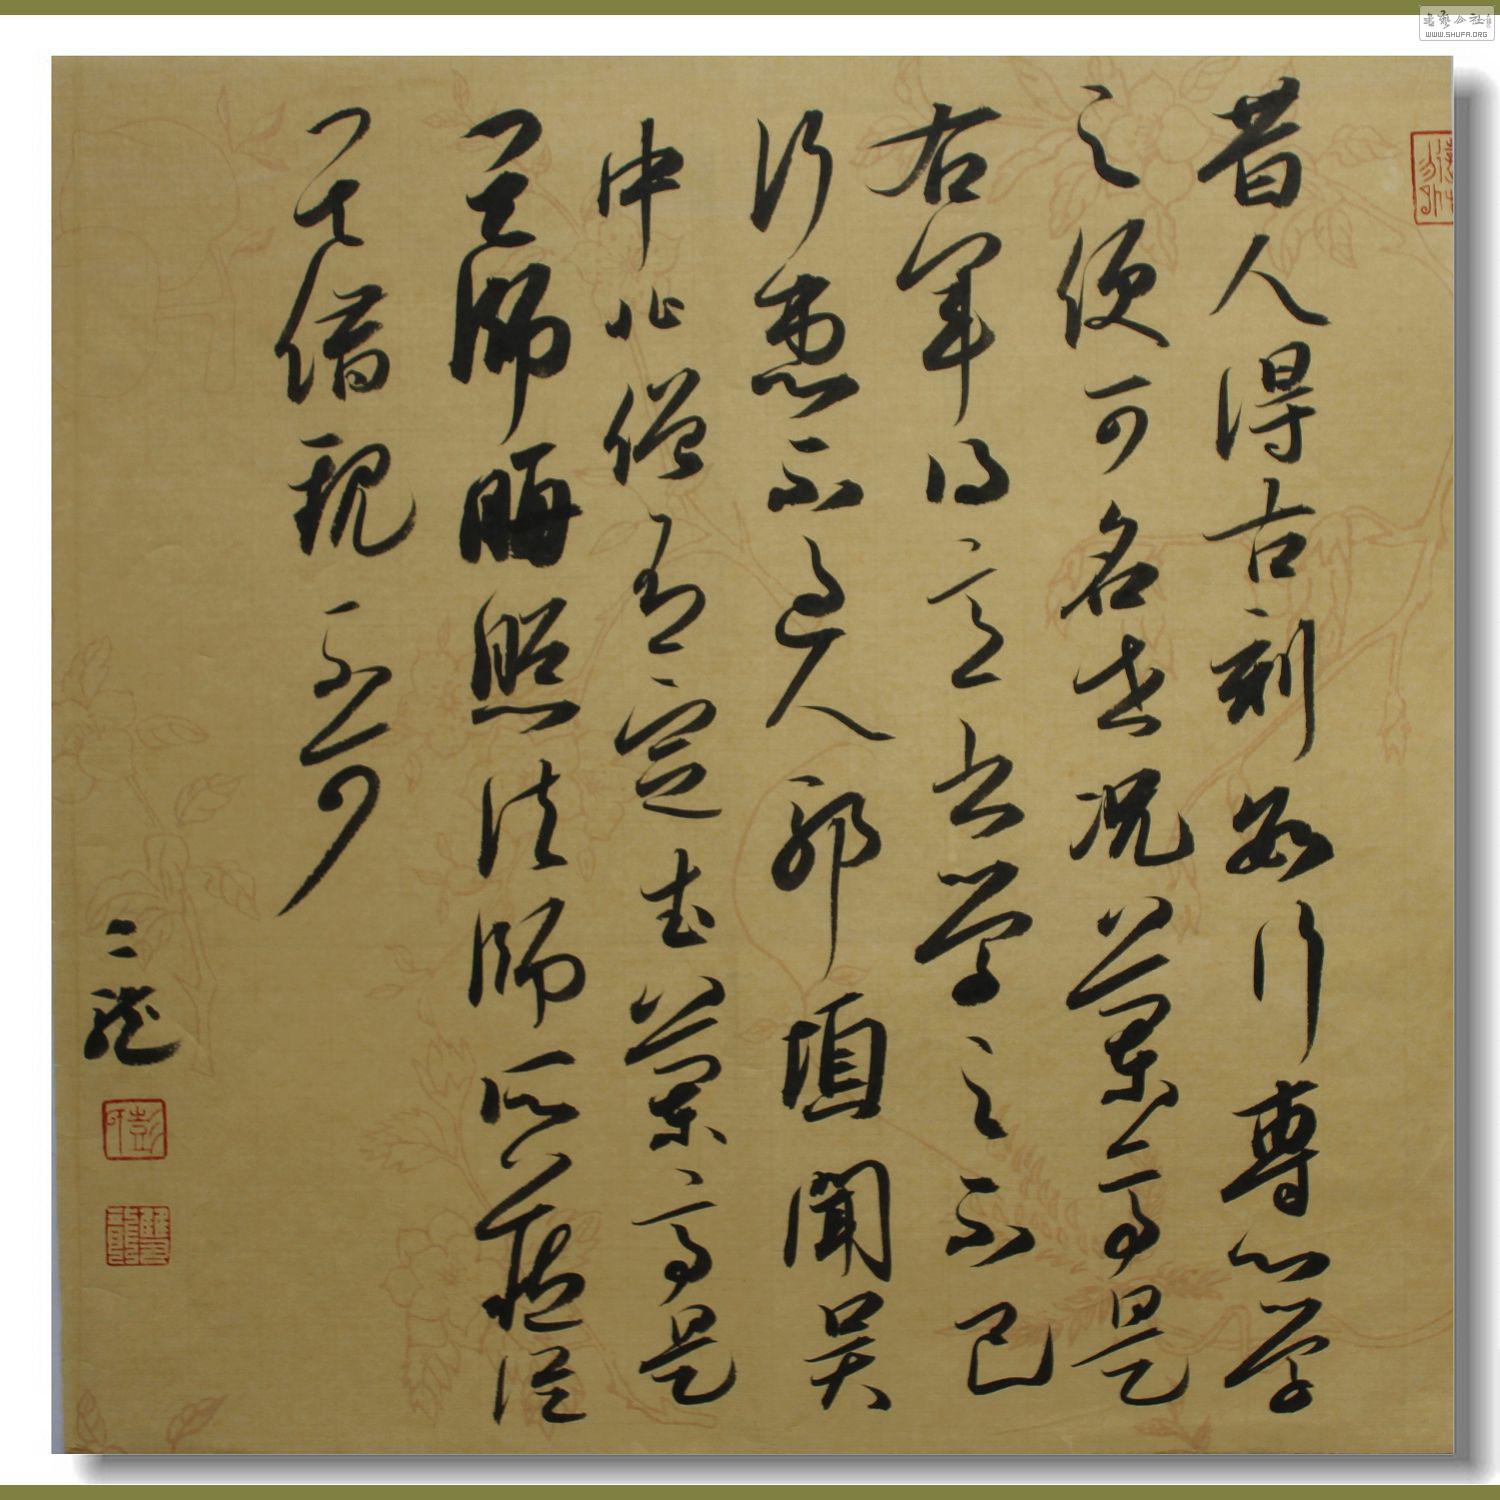 昔人得古刻數行專心學
之便可名世況蘭亭是
右軍得意書學之不已
何患不過人耶頃聞吳
中北僧有定武蘭亭是
其師晦照法師所藏從
其借觀不可
二龍
書藝公社
WWW.SHUFA.ORG